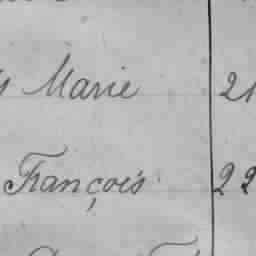 Marie 21
François 22